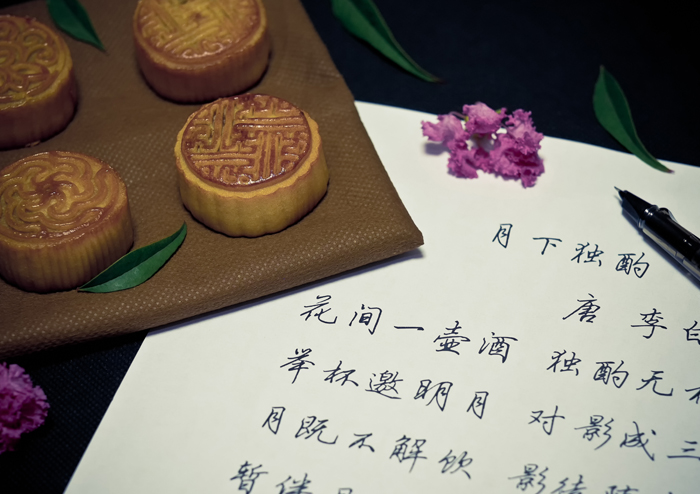 月下独酌
唐 李白
花间一壶酒 独酌无
举杯邀明月 对影成三
月既不解饮 影徒
暂伴